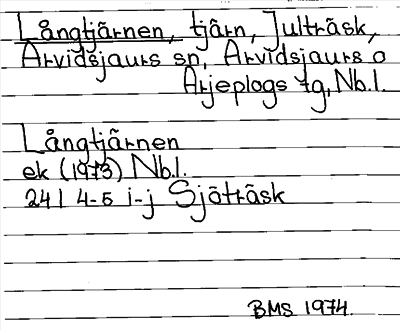 Långtjärnen, tjärn, Julträsk,
Arvidsjaurs sn, Arvidsjaurs o
Arjeplogs tg, Nb.l.
Långtjärnen
ek (1973) Nb.l.
24I 4-5 i-j Sjöträsk
BMS 1974.